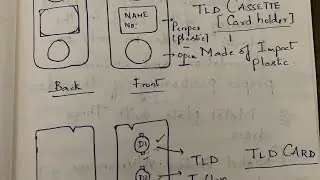 TLD CASSETTE
[Card holder]
NAME
NO:
Perspex
(plastic)
open Made of Impact
Plastic.
Back Front
D1
TLD TLD CARD
D2